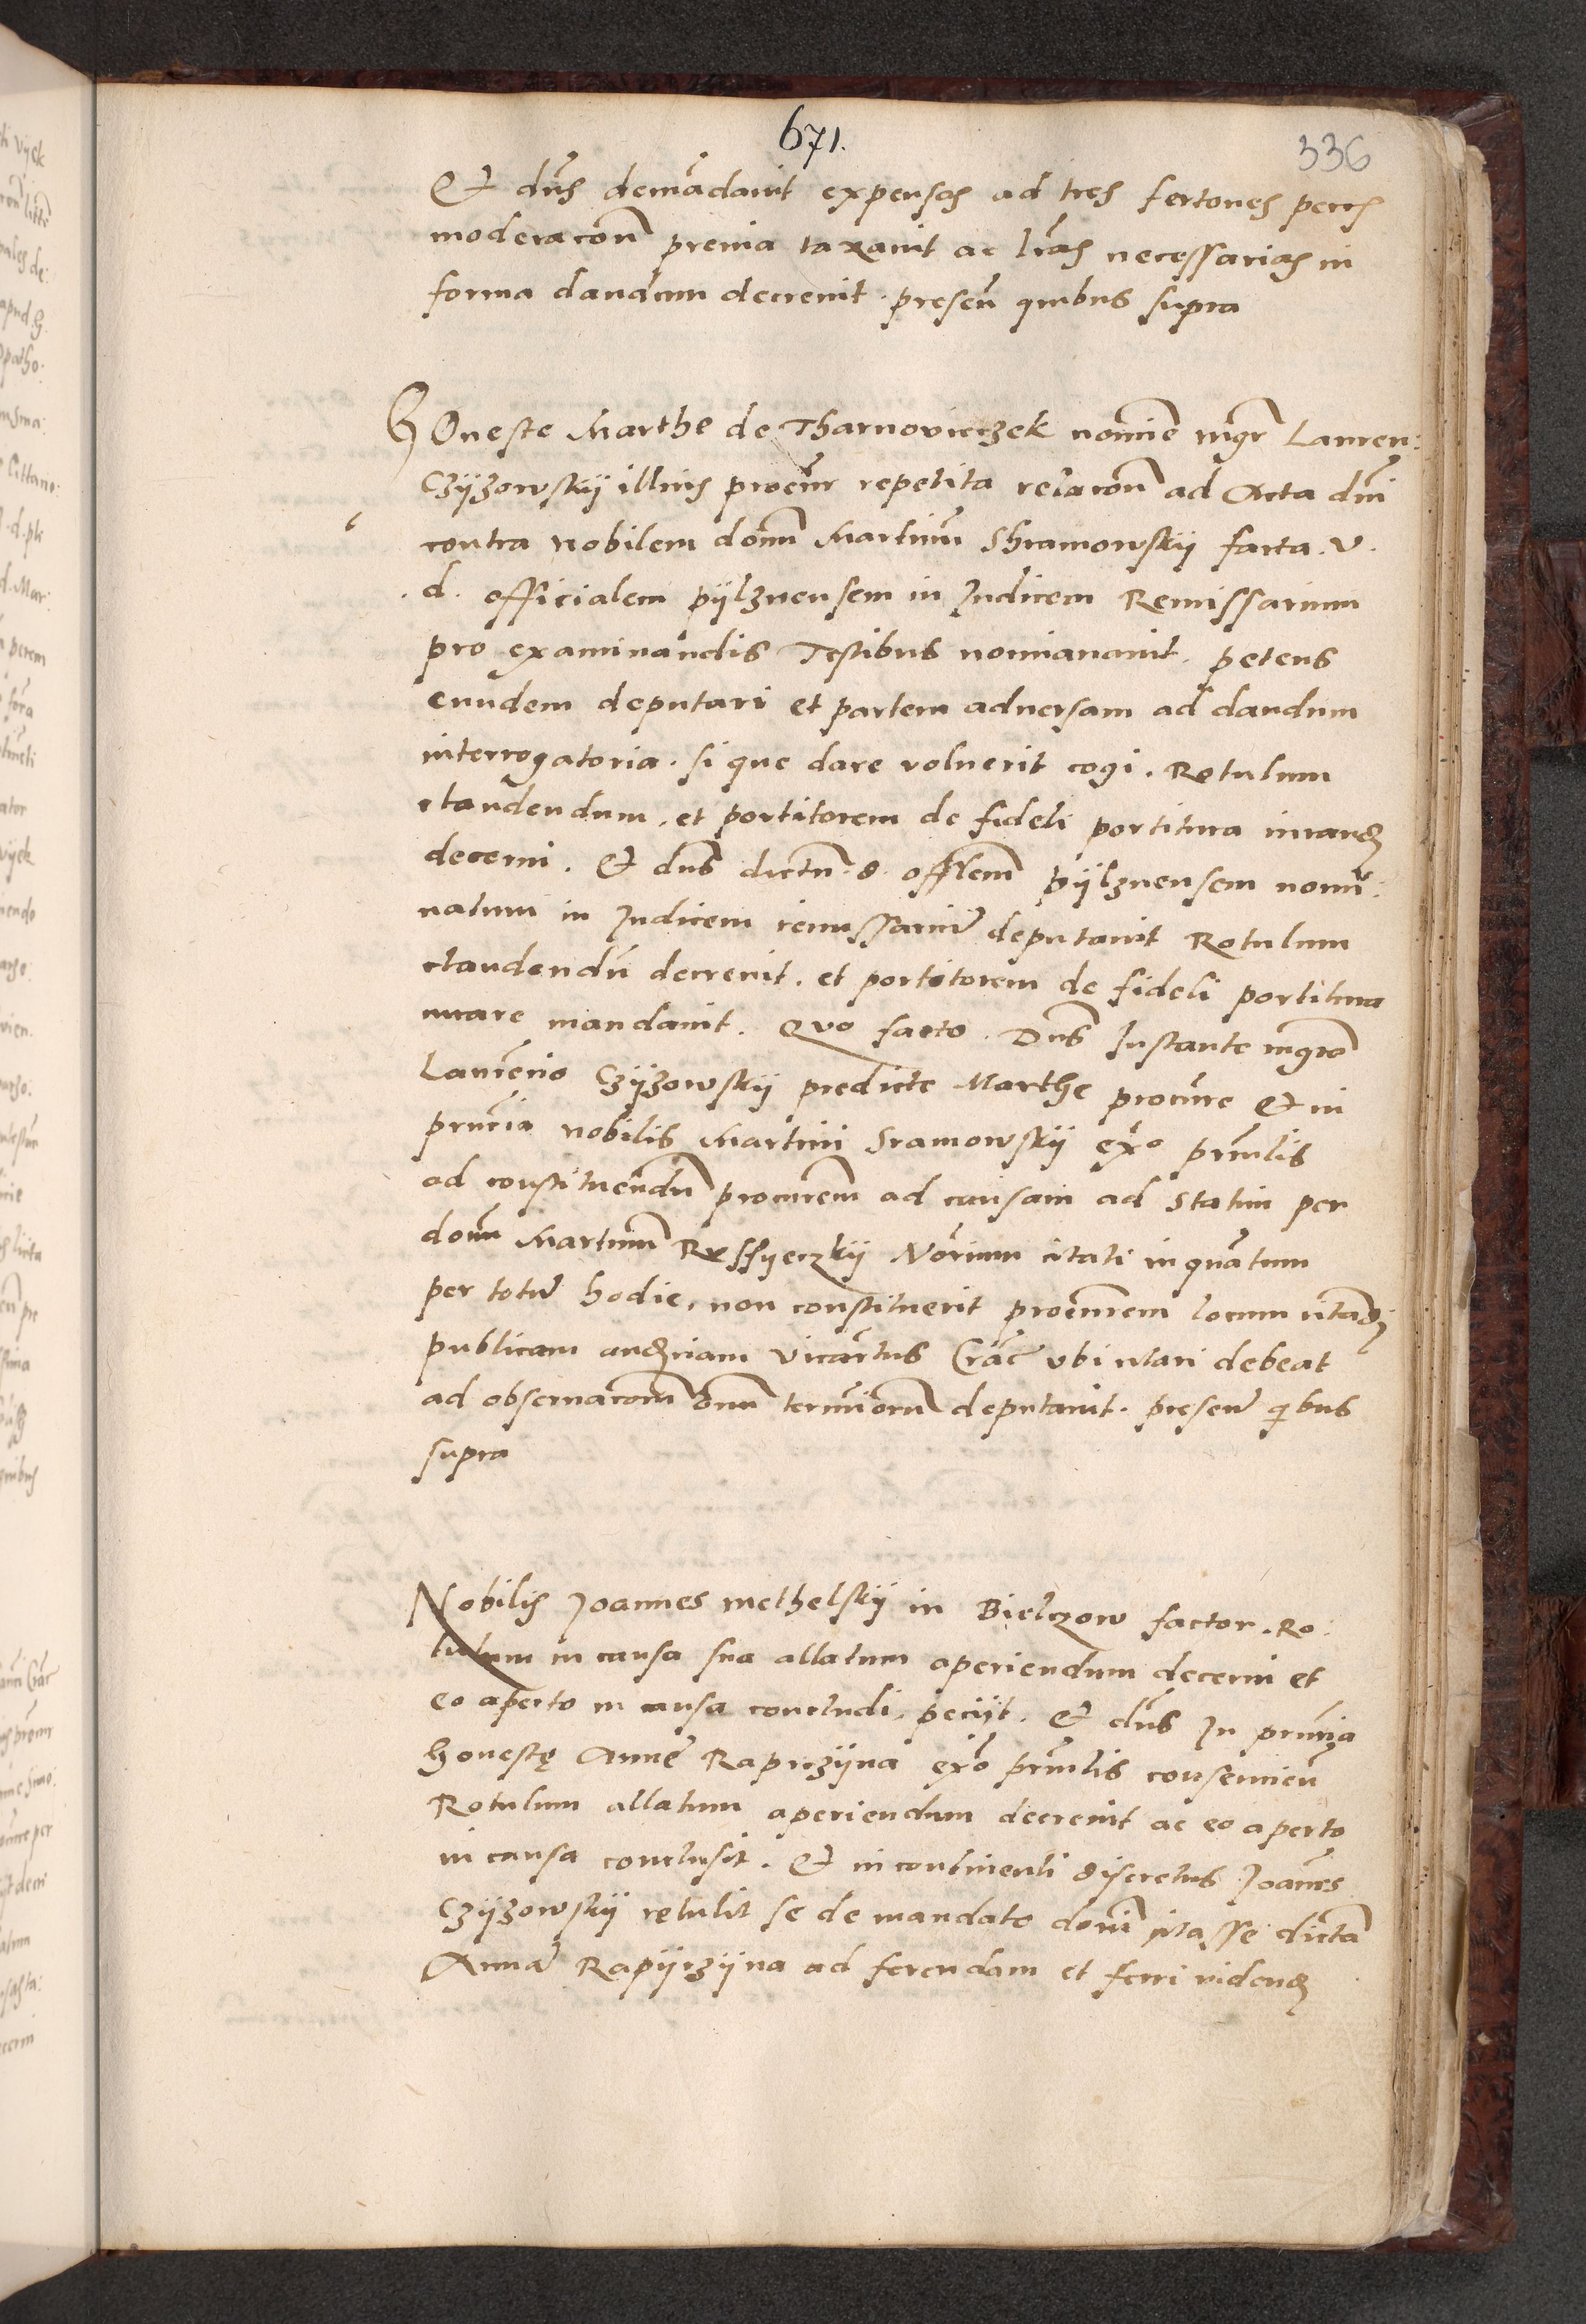 671.
336
Et dns demadauit expensas ad tres fertones
moderacon preuia taxauit ac lras necessarias in
forma dandum decreuit. presen quibus supra
Honeste Marthe de Tharnovieczek nomine mgr Lauren:
Czÿzowskÿ illius procur repetita relacon ad Acta dni
contra Nobilem donu Martinu Shramowskÿ facta. v.
.d. officialem pÿlznensem in Judicem Remissarium
pro examinandis Testibus nominauit. petens
eundem deputari et partem aduersam ad dandum
interrogatoria. si que dare voluerit cogi. Rotulum
claudendum. et portitorem de fideli portitura iurand
decerni. Et dns dictu .d. offlem pÿlznensem nomi:
natum in Judicem remissariu deputauit Rotulum
claudendu decreuit. et portitorem de fideli portitura
iurare mandauit. Quo facto. Dns Instante mgro
Laurencio Czÿzowskÿ predicte Marthe procure Et in
pncia nobilis Martini Sramowskÿ exo
ad constituendu procurem ad causam ad Statim per
donu Martinum Ressyeczkÿ Norium citati in quatum
per totu hodie, non constituerit procurem locum citand
publicam audnciam vicartus Crac vbi citari debeat
ad obseruacom oniu terminoru deputauit. presen qbus
supra
Nobilis Joannes Methelskÿ in Bielczow factor. Ro:
tulum in causa sua allatum aperiendum decerni et
eo aperto in causa concludi. peciit. Et dns In
honestę Anne Rapiczÿna exo
Rotulum allatum aperiendum decreuit ac eo aperto
in causa conclusit. Et incontinenti discretus Joanes
Czÿzowskÿ retulit se de mandato doni citasse dicta
Anna Rapÿczÿna ad ferendam et ferri vidend